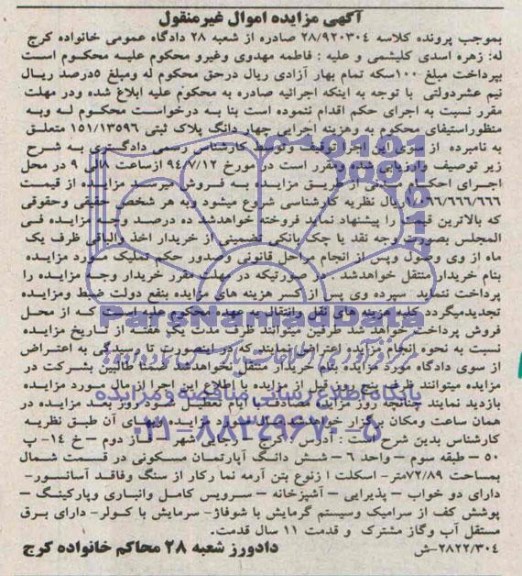 آگهی مزایده اموال غیرمنقول
بموجب پرونده کلاسه ۲۸/۹۲۰۳۰۴ صادره از شعبه ۲۸ دادگاه عمومی خانواده کرج
له: زهره اسدی کلیشمی و علیه : فاطمه مهدوی وغیرو محکوم علیه محکوم است
بپرداخت مبلغ ۱۰۰سکه تمام بهار آزادی ریال درحق محکوم له ومبلغ ۵درصد ریال
نیم عشردولتی با توجه به اینکه اجرائیه صادره به محکوم علیه ابلاغ شده ودر مهلت
مقرر نسبت به اجرای حکم اقدام ننموده است بنا به درخواست محکوم له وبه
منظوراستیفای محکوم به وهزینه اجرایی چهار دانگ پلاک ثبتی ۱۵۱/۱۳۵۹۶ متعلق
به نامبرده از سوی این اجرا توقیف وتوسط کارشناس رسمی دادگستری به شرح
زیر توصیف وارزیابی شده ومقرر است در مورخ ۹۴/۷/۱۲ ازساعت ۸الی ۹ در محل
اجرای احکام مدنی از طریق مزایده به فروش میرسد مزایده از قیمت
۱/۰۶۶/۶۶۶/۶۶۶ریال نظریه کارشناسی شروع میشود وبه هر شخص حقیقی وحقوقی
که بالاترین قیمت را پیشنهاد نماید فروخته خواهدشد ده درصد وجه مزایده فی
المجلس بصورت وجه نقد یا چک بانکی تضمینی از خریدار اخذ والباقی ظرف یک
ماه از وی وصول وپس از انجام مراحل قانونی وصدور حکم تملیک مورد مزایده
بنام خریدار منتقل خواهدشد . در صورتیکه در مهلت مقرر خریدار وجه مزایده را
پرداخت ننماید سپرده وی پس از کسر هزینه های مزایده بنفع دولت ضبط ومزایده
تجدیدمیگردد کلیه هزینه های نقل وانتقال به عهده محکوم علیه است که از محل
فروش پرداخت خواهد شد طرفین میتوانند ظرف مدت یک هفته از تاریخ مزایده
نسبت به نحوه انجام مزایده اعتراض نمایند که در اینصورت تا رسیدگی به اعتراض
از سوی دادگاه مورد مزایده بنام خریدار منتقل نخواهدشد ضمنا طالبین بشرکت در
مزایده میتوانند ظرف پنج روز قبل از مزایده با اطلاع این اجرا از مال مورد مزایده
بازدید نمایند چنانچه روز مزایده مصادف با ایام تعطیل شود روز بعد مزایده در
همان ساعت ومکان برگزار خواهدشد مال مورد مزایده وبهای آن طبق نظریه
کارشناس بدین شرح است : آدرس کرج – رجایی شهر – فاز دوم – خ ۱۴- پ
۵۰ – طبقه سوم – واحد ۶ – شش دانگ آپارتمان مسکونی در قسمت شمال
بمساحت ۷۲/۸۹متر- اسکلت ا زنوع بتن آرمه نما رکار از سنگ وفاقد آسانسور-
دارای دو خواب – پذیرایی – آشپزخانه – سرویس کامل وانباری وپارکینگ –
پوشش کف از سرامیک وسیستم گرمایش با شوفاژ- سرمایش با کولر- دارای برق
مستقل آب وگاز مشترک و قدمت ۱۱ سال قدمت.
۲۸۲۲/۳۰۴-ش دادورز شعبه ۲۸ محاکم خانواده کرج
ParsNamadData
پایگاه اطلاع رسانی مناقصه ومزایده
۰۲۱-۸۸۳۴۹۶۷۰-۵